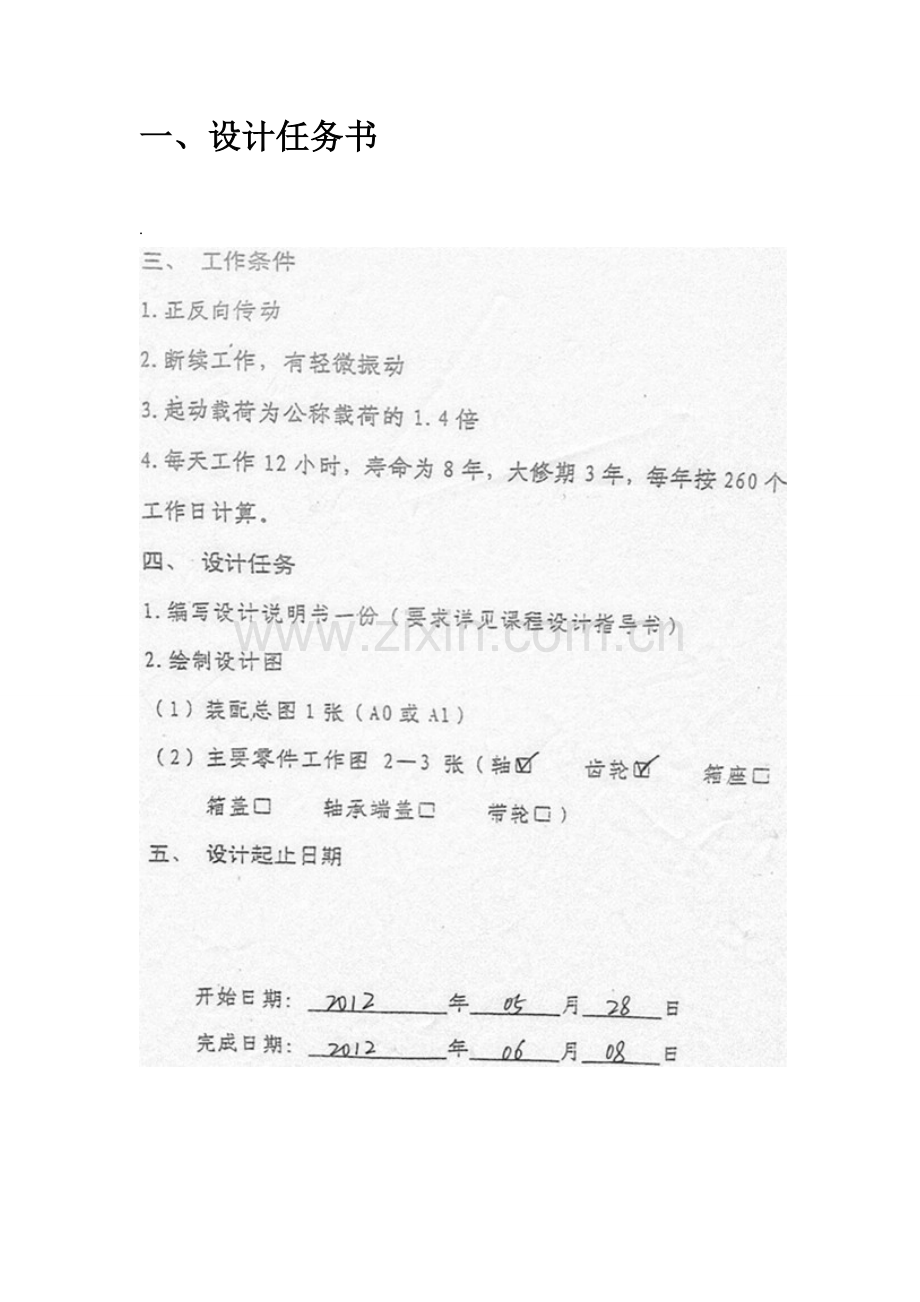 一、设计任务书
.
三、 工作条件
1.正反向传动
2.断续工作，有轻微振动
3.起动载荷为公称载荷的1.4倍
4.每天工作12小时，寿命为8年，大修期3年，每年按260个
工作日计算。
四、 设计任务
1.编写设计说明书一份（要求详见课程设计指导书）
www.zixin.com.cn
2.绘制设计图
（1）装配总图1张（A0或A1）
（2）主要零件工作图 2—3 张（轴☑ 齿轮☑ 箱座□
箱盖□ 轴承端盖□ 带轮□）
五、 设计起止日期
开始日期： 2012 年 05 月 28 日
完成日期： 2012 年 06 月 08 日